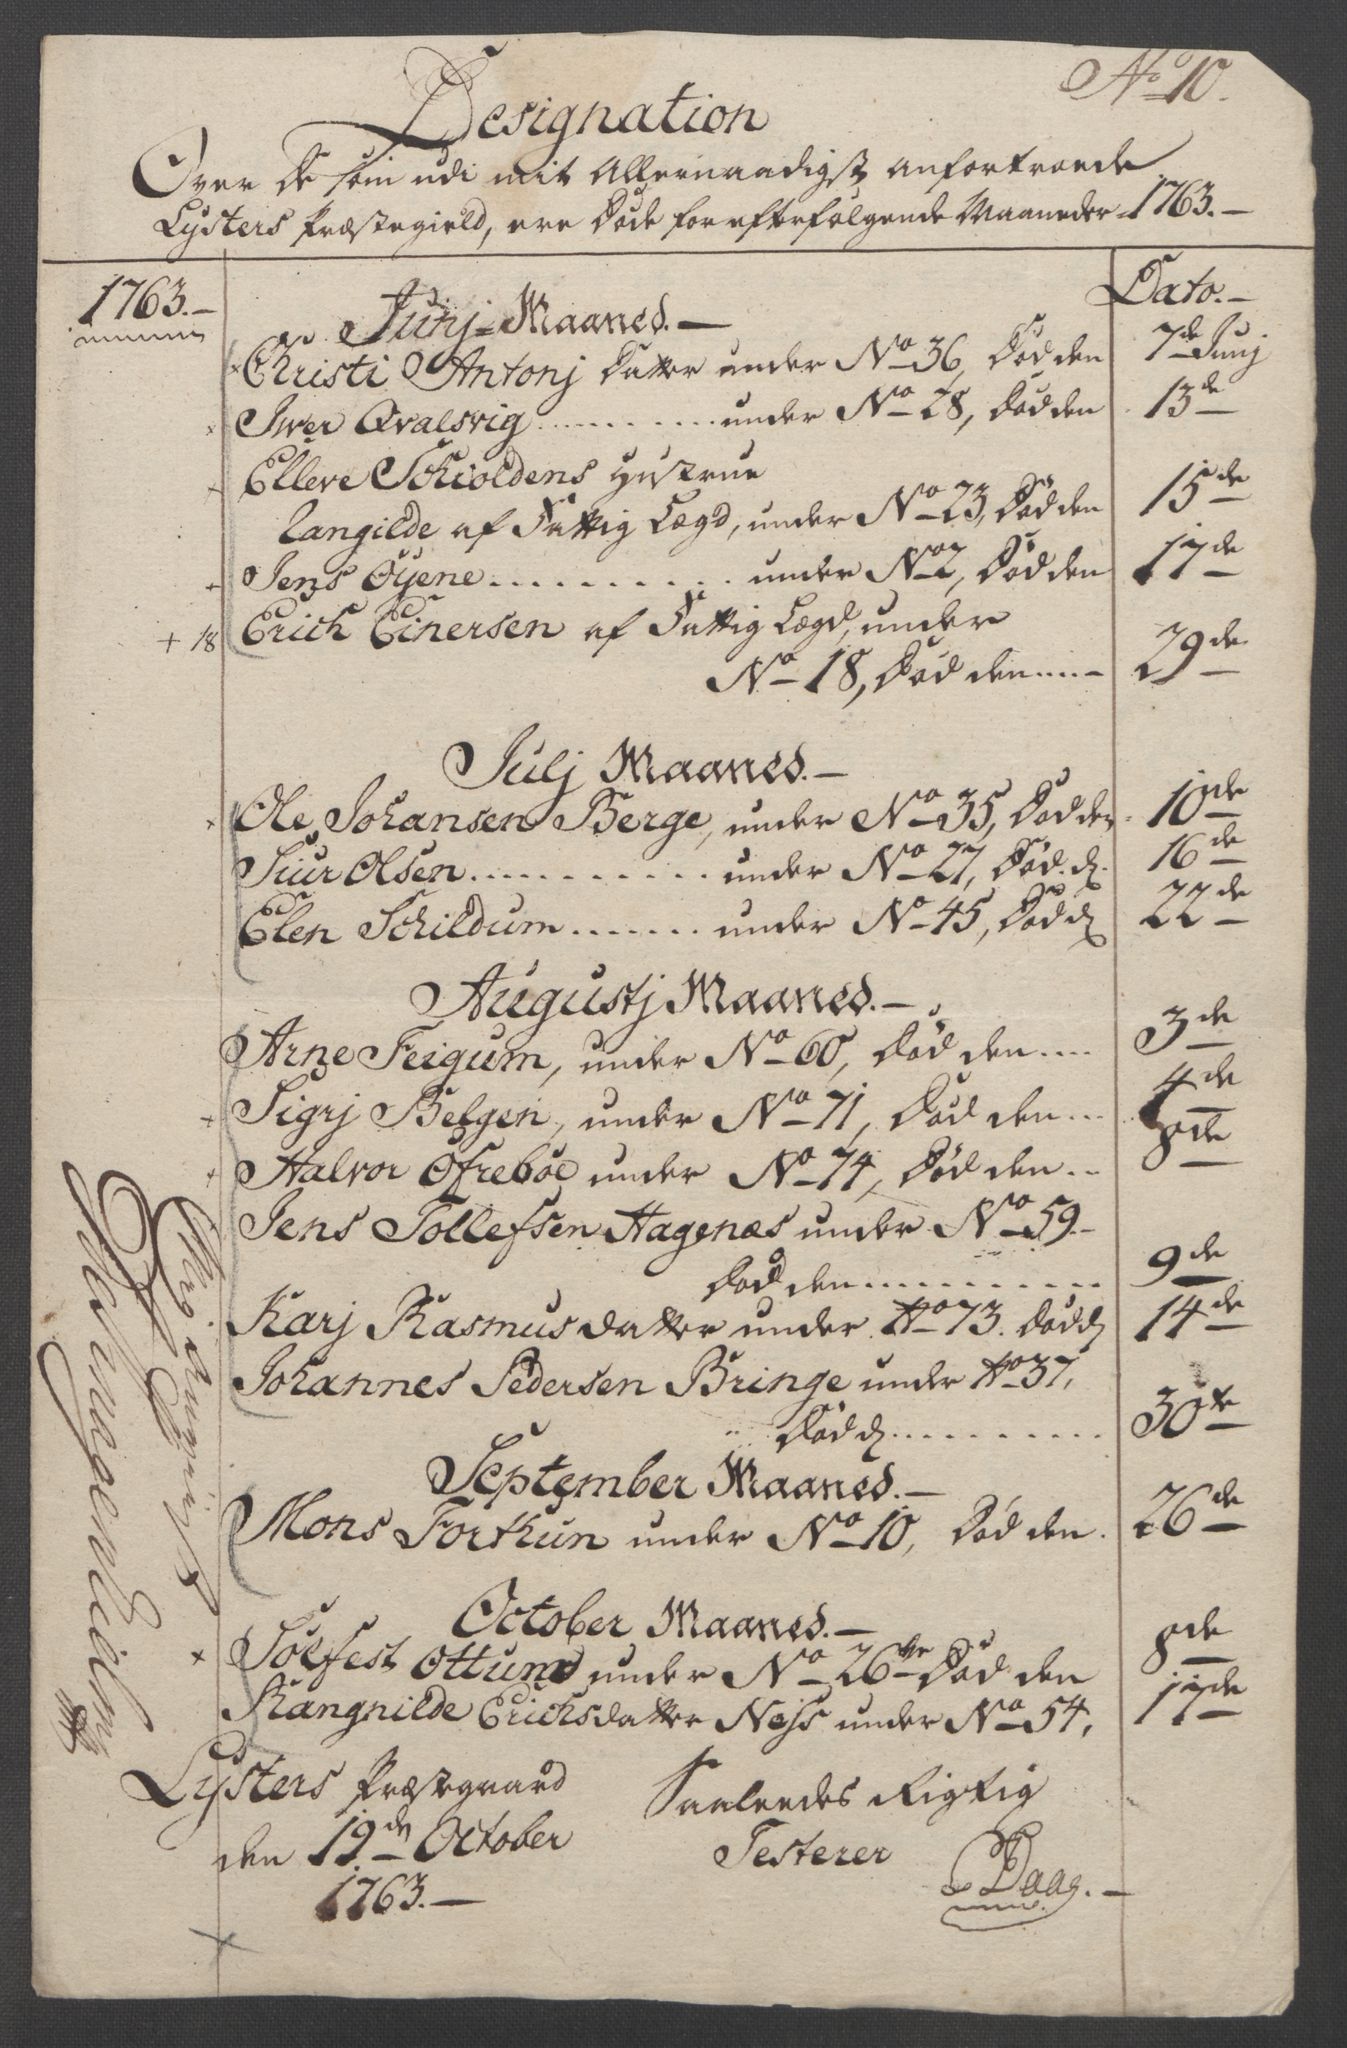 No 10.
Designation
Over de som udi mit Allernaadigst anfortroede
Lysters Præstegield, ere døde for efterfølgende Maaneder 1763.
1763.
Dato.
Junj Maaned.
Christi Antonj Datter under No 36, Død den 7de Junj
Iwer Qvalsvig .......... under No 28, død den 13de
Ellere Schioldens Hustrue
Langilde af Fattig Lægd, under No 23, Død den 15de
Jens Øyene .......... under No 2, Død den 17de
+ 18 Erich Einersen af Fattig Lægd, under
No 18, Død den ..... 29de
Julj Maaned.
Ole Johansen Berge, under No 35, Død den 10de
Siur Olsen .......... under No 27, Død d. 16de
Elen Schildum ....... under No 45, Død d. 22de
Augustj Maaned.
Arne Feigum, under No 60, Død den .... 3de
Sigrj Belgen, under No 71, Død den ... 4de
Halvor Ofrebøe under No 74, Død den .. 8de
Jens Tollefsen Hagenæs under No 59.
Død den .......... 9de
Karj Rasmusdatter under No 73. Død d. 14de
Johannes Pedersen Bringe under No 37,
Død d. .......... 30te
September Maaned.
Mons Forthun under No 10, Død den. 26de
October Maaned.
Solfest Ottum under No 26 Død den 8de
Rangnilde Erichsdatter Næss under No 54, 17de
Lysters Præstegaard
den 19de October
1763.
Saaledes Rigtig
Testerer
Daae.